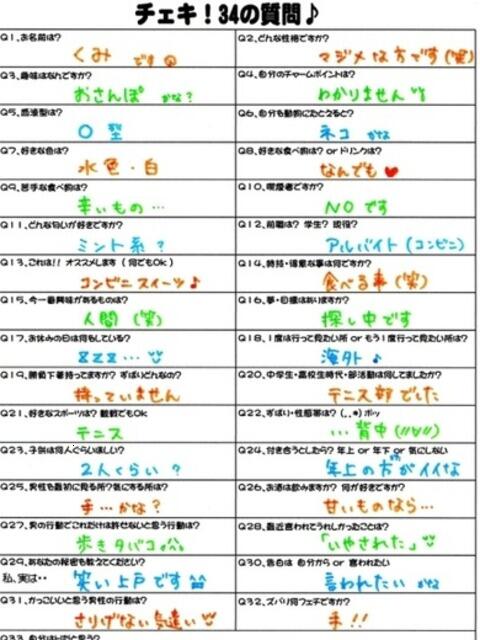 チェキ!34の質問♪
Q1、お名前は?
くみ です
Q2、どんな性格ですか?
マジメな方です(笑)
Q3、趣味はなんですか?
おさんぽ かな?
Q4、自分のチャームポイントは?
わかりません
Q5、血液型は?
O型
Q6、自分を動物にたとえると?
ネコ かな
Q7、好きな色は?
水色・白
Q8、好きな食べ物は? or ドリンクは?
なんでも♥
Q9、苦手な食べ物は?
辛いもの…
Q10、喫煙者ですか?
NOです
Q11、どんな匂いが好きですか?
ミント系?
Q12、前職は? 学生? 現役?
アルバイト(コンビニ)
Q13、これは!! オススメします(何でもOk)
コンビニスイーツ♪
Q14、特技・得意な事は何ですか?
食べる事(笑)
Q15、今一番興味があるものは?
人間(笑)
Q16、夢・目標はありますか?
探し中です
Q17、お休みの日は何をしている?
zzz…
Q18、1度は行って見たい所 or もう1度行って見たい所は?
海外♪
Q19、勝負下着持ってますか? ずばりどんなの?
持っていません
Q20、中学生・高校生時代・部活動は何してましたか?
テニス部でした
Q21、好きなスポーツは? 観戦でもOK
テニス
Q22、ずばり・性感帯は? (..*)ポッ
…背中(//∀//)
Q23、子供は何人ぐらいほしい?
2人くらい?
Q24、付き合うとしたら? 年上 or 年下 or 気にしない
年上の方がイイな
Q25、男性を最初に見る所?気にする所は?
手…かな?
Q26、お酒は飲みますか? 何が好きですか?
甘いものなら…
Q27、男の行動でこれだけは許せないと思う行動は?
歩きタバコ
Q28、最近言われてうれしかったことは?
「いやされた」
Q29、あなたの秘密を教えてください?
私、実は・・ 笑い上戸です
Q30、告白は 自分から or 言われたい
言われたい かな
Q31、かっこいいと思う男性の行動は?
さりげない気遣い
Q32、ズバリ何フェチですか?
手!!